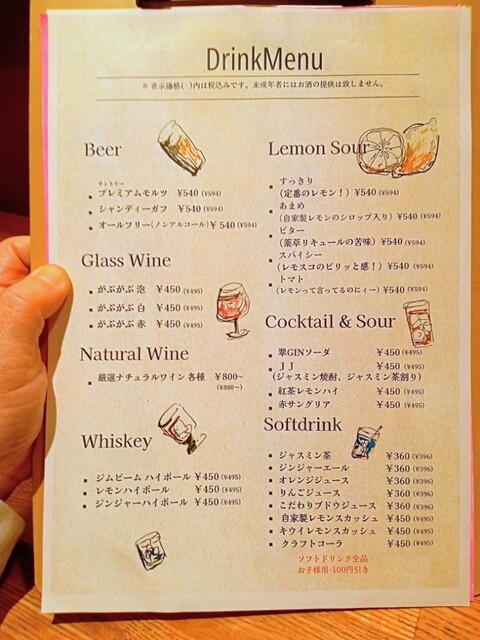 DrinkMenu
※表示価格( )内は税込みです。未成年者にはお酒の提供は致しません。
Beer
サントリー
プレミアムモルツ ¥540 (¥594)
シャンディーガフ ¥540 (¥594)
オールフリー(ノンアルコール) ¥540 (¥594)
Glass Wine
がぶがぶ 泡 ¥450 (¥495)
がぶがぶ 白 ¥450 (¥495)
がぶがぶ 赤 ¥450 (¥495)
Natural Wine
厳選ナチュラルワイン 各種 ¥800~
(¥880~)
Whiskey
ジムビーム ハイボール ¥450 (¥495)
レモンハイボール ¥450 (¥495)
ジンジャーハイボール ¥450 (¥495)
Lemon Sour
すっきり
(定番のレモン!) ¥540 (¥594)
あまめ
(自家製レモンのシロップ入り) ¥540 (¥594)
ビター
(薬草リキュールの苦味) ¥540 (¥594)
スパイシー
(レモスコのピリッと感!) ¥540 (¥594)
トマト
(レモンって言ってるのにィー) ¥540 (¥594)
Cocktail & Sour
翠GINソーダ ¥450 (¥495)
JJ ¥450 (¥495)
(ジャスミン焼酎、ジャスミン茶割り)
紅茶レモンハイ ¥450 (¥495)
赤サングリア ¥450 (¥495)
Softdrink
ジャスミン茶 ¥360 (¥396)
ジンジャーエール ¥360 (¥396)
オレンジジュース ¥360 (¥396)
りんごジュース ¥360 (¥396)
こだわりブドウジュース ¥360 (¥396)
自家製レモンスカッシュ ¥450 (¥495)
キウイレモンスカッシュ ¥450 (¥495)
クラフトコーラ ¥450 (¥495)
ソフトドリンク全品
お子様用-100円引き